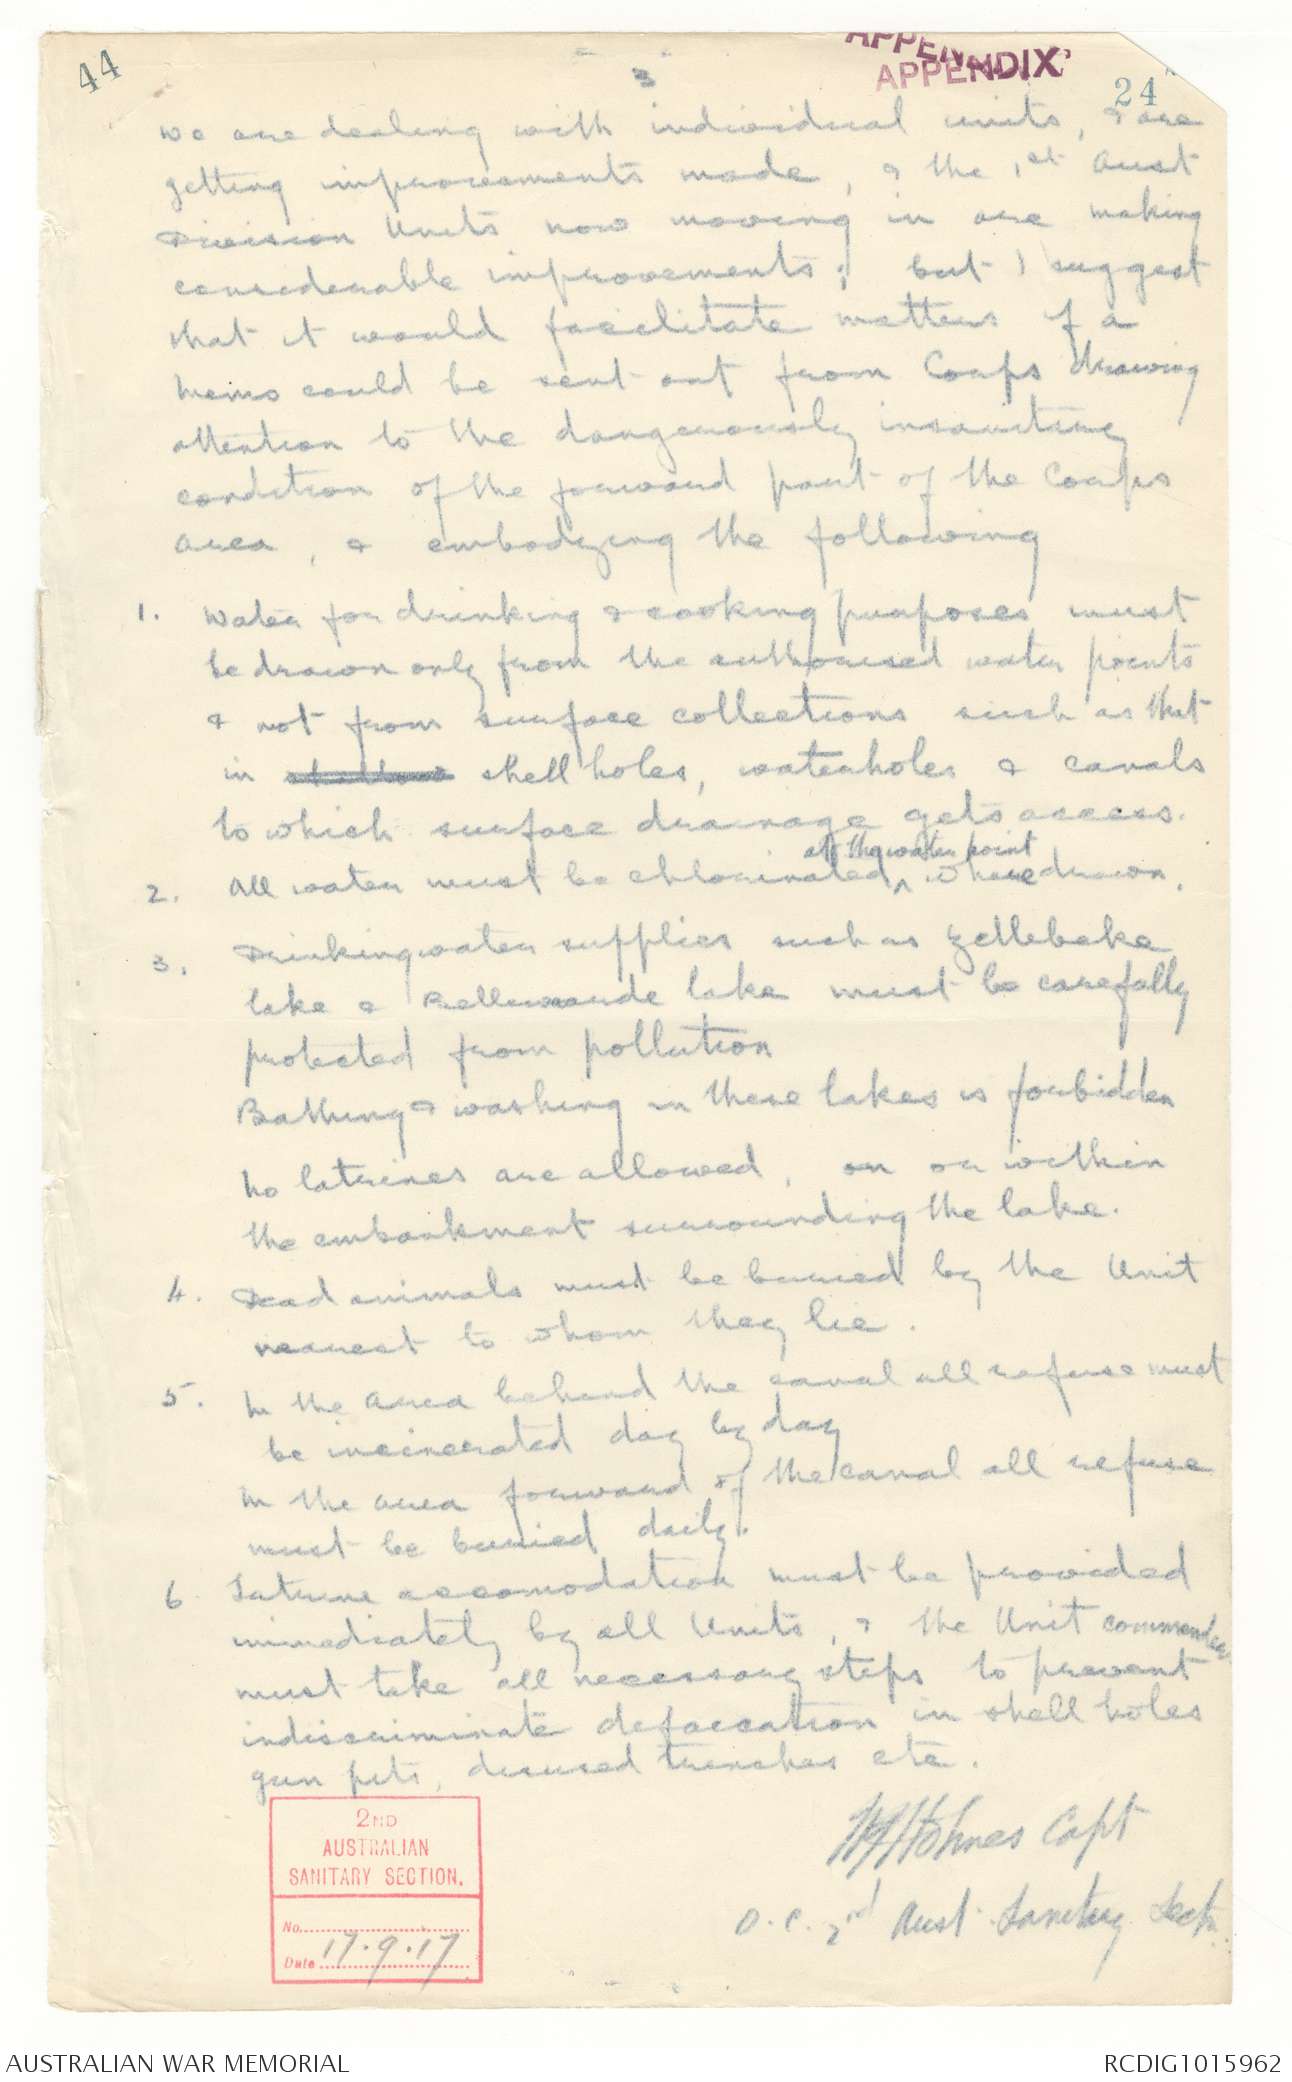 44
3
APPENDIX
APPENDIX
24
we are dealing with individual units, & are
getting improvements made, & the 1st Aust
Division Units now moving in are making
considerable improvements; but I suggest
that it would facilitate matters if a
memo could be sent out from Corps drawing
attention to the dangerously insanitary
condition of the forward part of the Corps
area, & embodying the following
1. Water for drinking & cooking purposes must
be drawn only from the authorised water points
& not from surface collections such as that
in shell holes, waterholes & canals
to which surface drainage gets access.
at the water point
2. All water must be chlorinated ^ where drawn.
3. Drinking water supplies such as Zellebeke
lake & Bellewaarde lake must be carefully
protected from pollution
Bathing & washing in these lakes is forbidden
No latrines are allowed, on or within
the embankment surrounding the lake.
4. Dead animals must be buried by the Unit
nearest to whom they lie.
5. In the area behind the canal all refuse must
be incinerated day by day
In the area forward of the canal all refuse
must be buried daily.
6 Latrine accomodation must be provided
immediately by all Units, & the Unit commander
must take all necessary steps to prevent
indiscriminate defaecation in shell holes
gun pits, disused trenches etc.
Holmes Capt
O.C. 2nd Aust Sanitary Sectn.
2ND
AUSTRALIAN
SANITARY SECTION.
No.
Date 17.9.17
AUSTRALIAN WAR MEMORIAL
RCDIG1015962